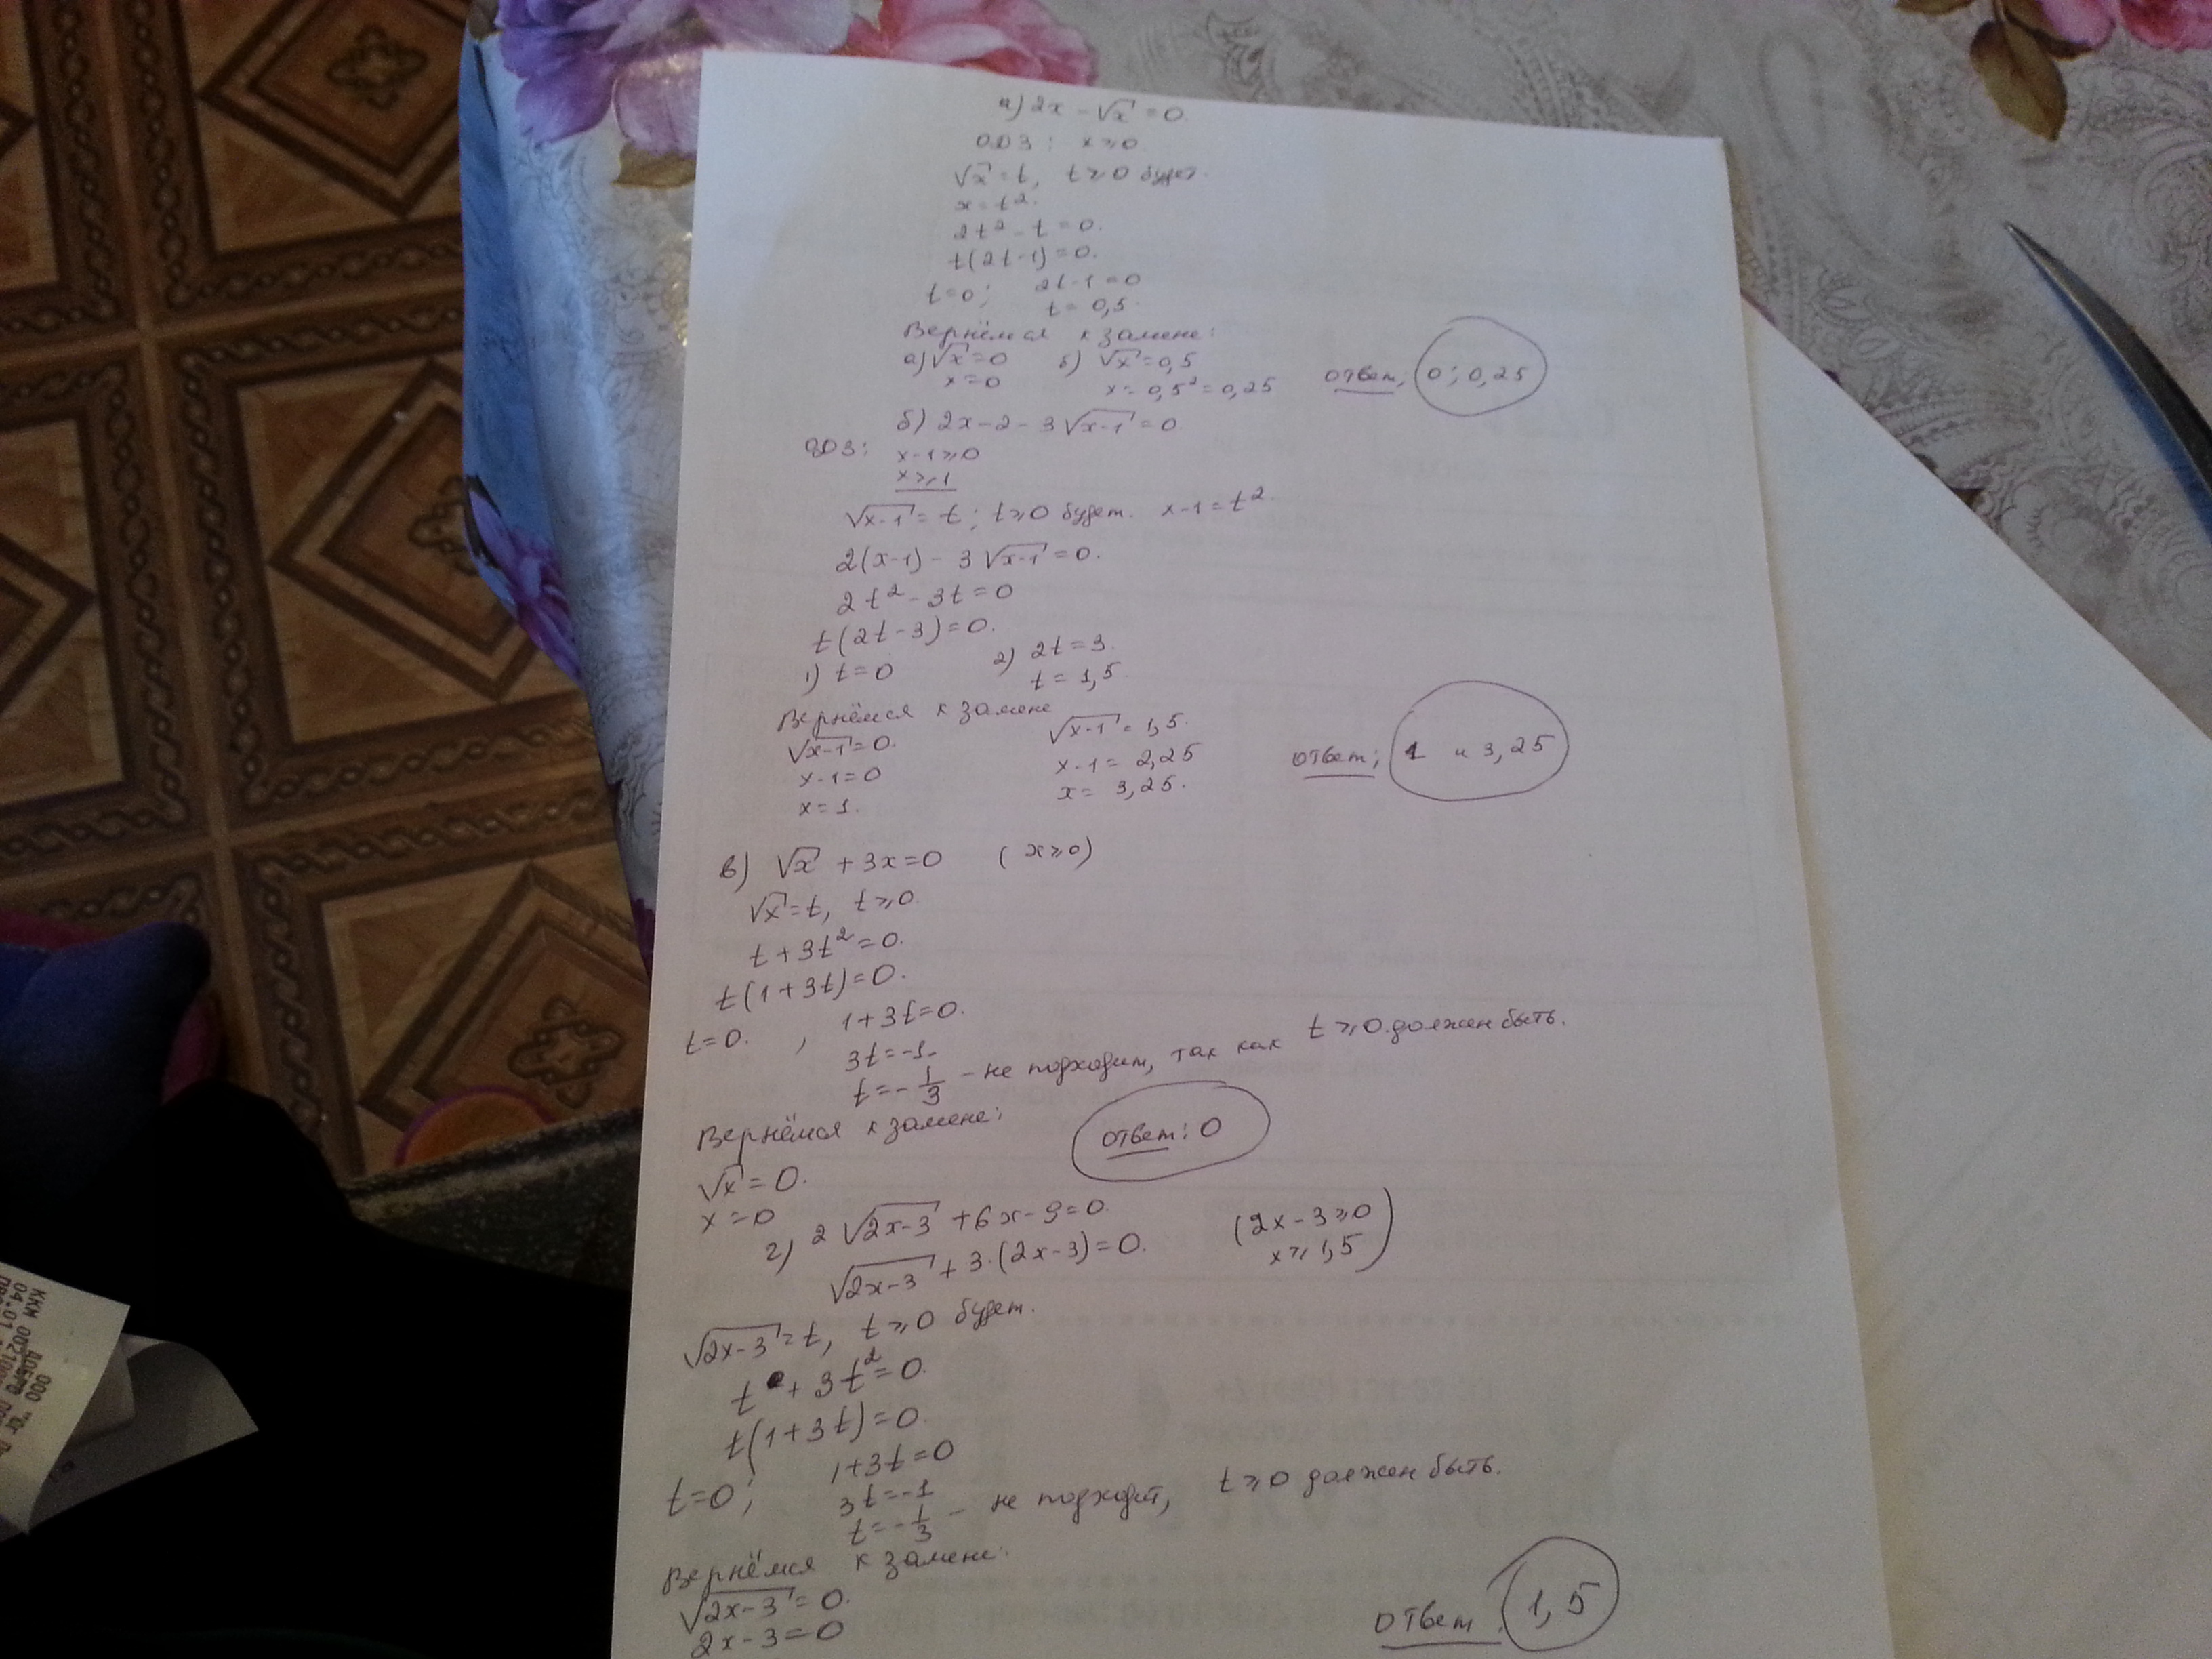 а) 2x - √x = 0.
ОДЗ: x ≥ 0
√x = t, t ≥ 0 будет.
x = t².
2t² - t = 0.
t(2t-1) = 0.
t=0; 2t-1=0
t = 0,5
Вернёмся к замене:
а) √x = 0 б) √x = 0,5
x = 0 x = 0,5² = 0,25 ответ; 0; 0,25
б) 2x - 2 - 3√x-1 = 0
ОДЗ: x-1 ≥ 0
x ≥ 1
√x-1 = t; t ≥ 0 будет. x-1 = t².
2(x-1) - 3√x-1 = 0.
2t² - 3t = 0
t(2t-3) = 0.
1) t = 0 2) 2t = 3.
t = 1,5
Вернёмся к замене
√x-1 = 0. √x-1 = 1,5.
x-1 = 0 x-1 = 2,25 ответ; 1 и 3,25
x = 1. x = 3,25.
в) √x + 3x = 0 (x ≥ 0)
√x = t, t ≥ 0.
t + 3t² = 0.
t(1+3t) = 0.
t=0. , 1+3t=0.
3t=-1.
t = -1/3 - не подходит, так как t ≥ 0 должен быть.
Вернёмся к замене: ответ: 0
√x = 0.
x = 0
г) 2√2x-3 + 6x - 9 = 0. (2x-3 ≥ 0
√2x-3 + 3·(2x-3) = 0. x ≥ 1,5)
√2x-3 = t, t ≥ 0 будет.
t + 3t² = 0.
t(1+3t) = 0.
t=0; 1+3t=0
3t=-1
t = -1/3 - не подходит, t ≥ 0 должен быть.
Вернёмся к замене:
√2x-3 = 0.
2x-3 = 0 ответ: 1,5
ККМ 00
04.01
ООО